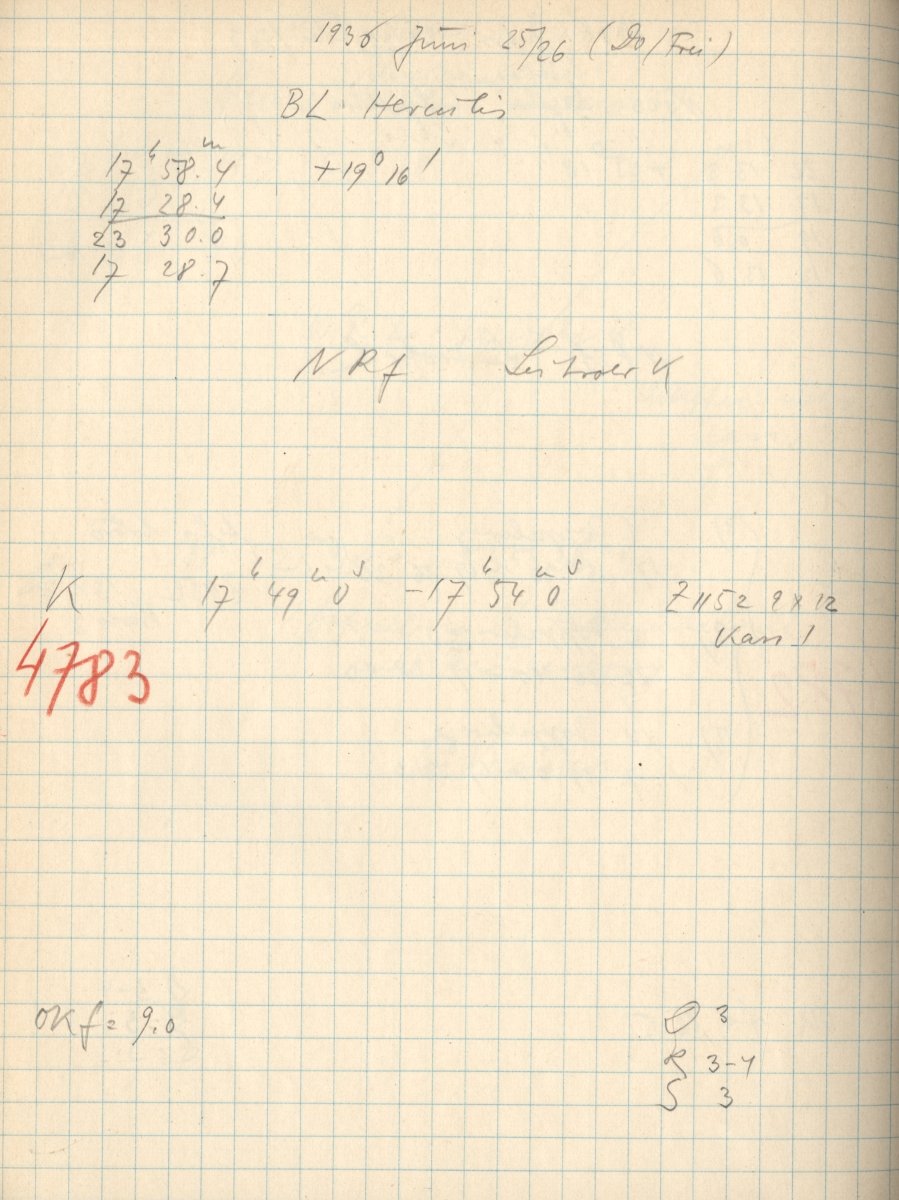 1936 Juni 25/26 (Do/Frei)
BL Herculis
17ʰ 58.ᵐ4 +19° 16'
17 28.4
23 30.0
17 28.7
N R f K
K 17ʰ 49ᵐ 0ˢ -17ʰ 54ᵐ 0ˢ Z 1152 9 x 12
Kass 1
4783
OKf = 9.0
D 3
R 3-4
S 3